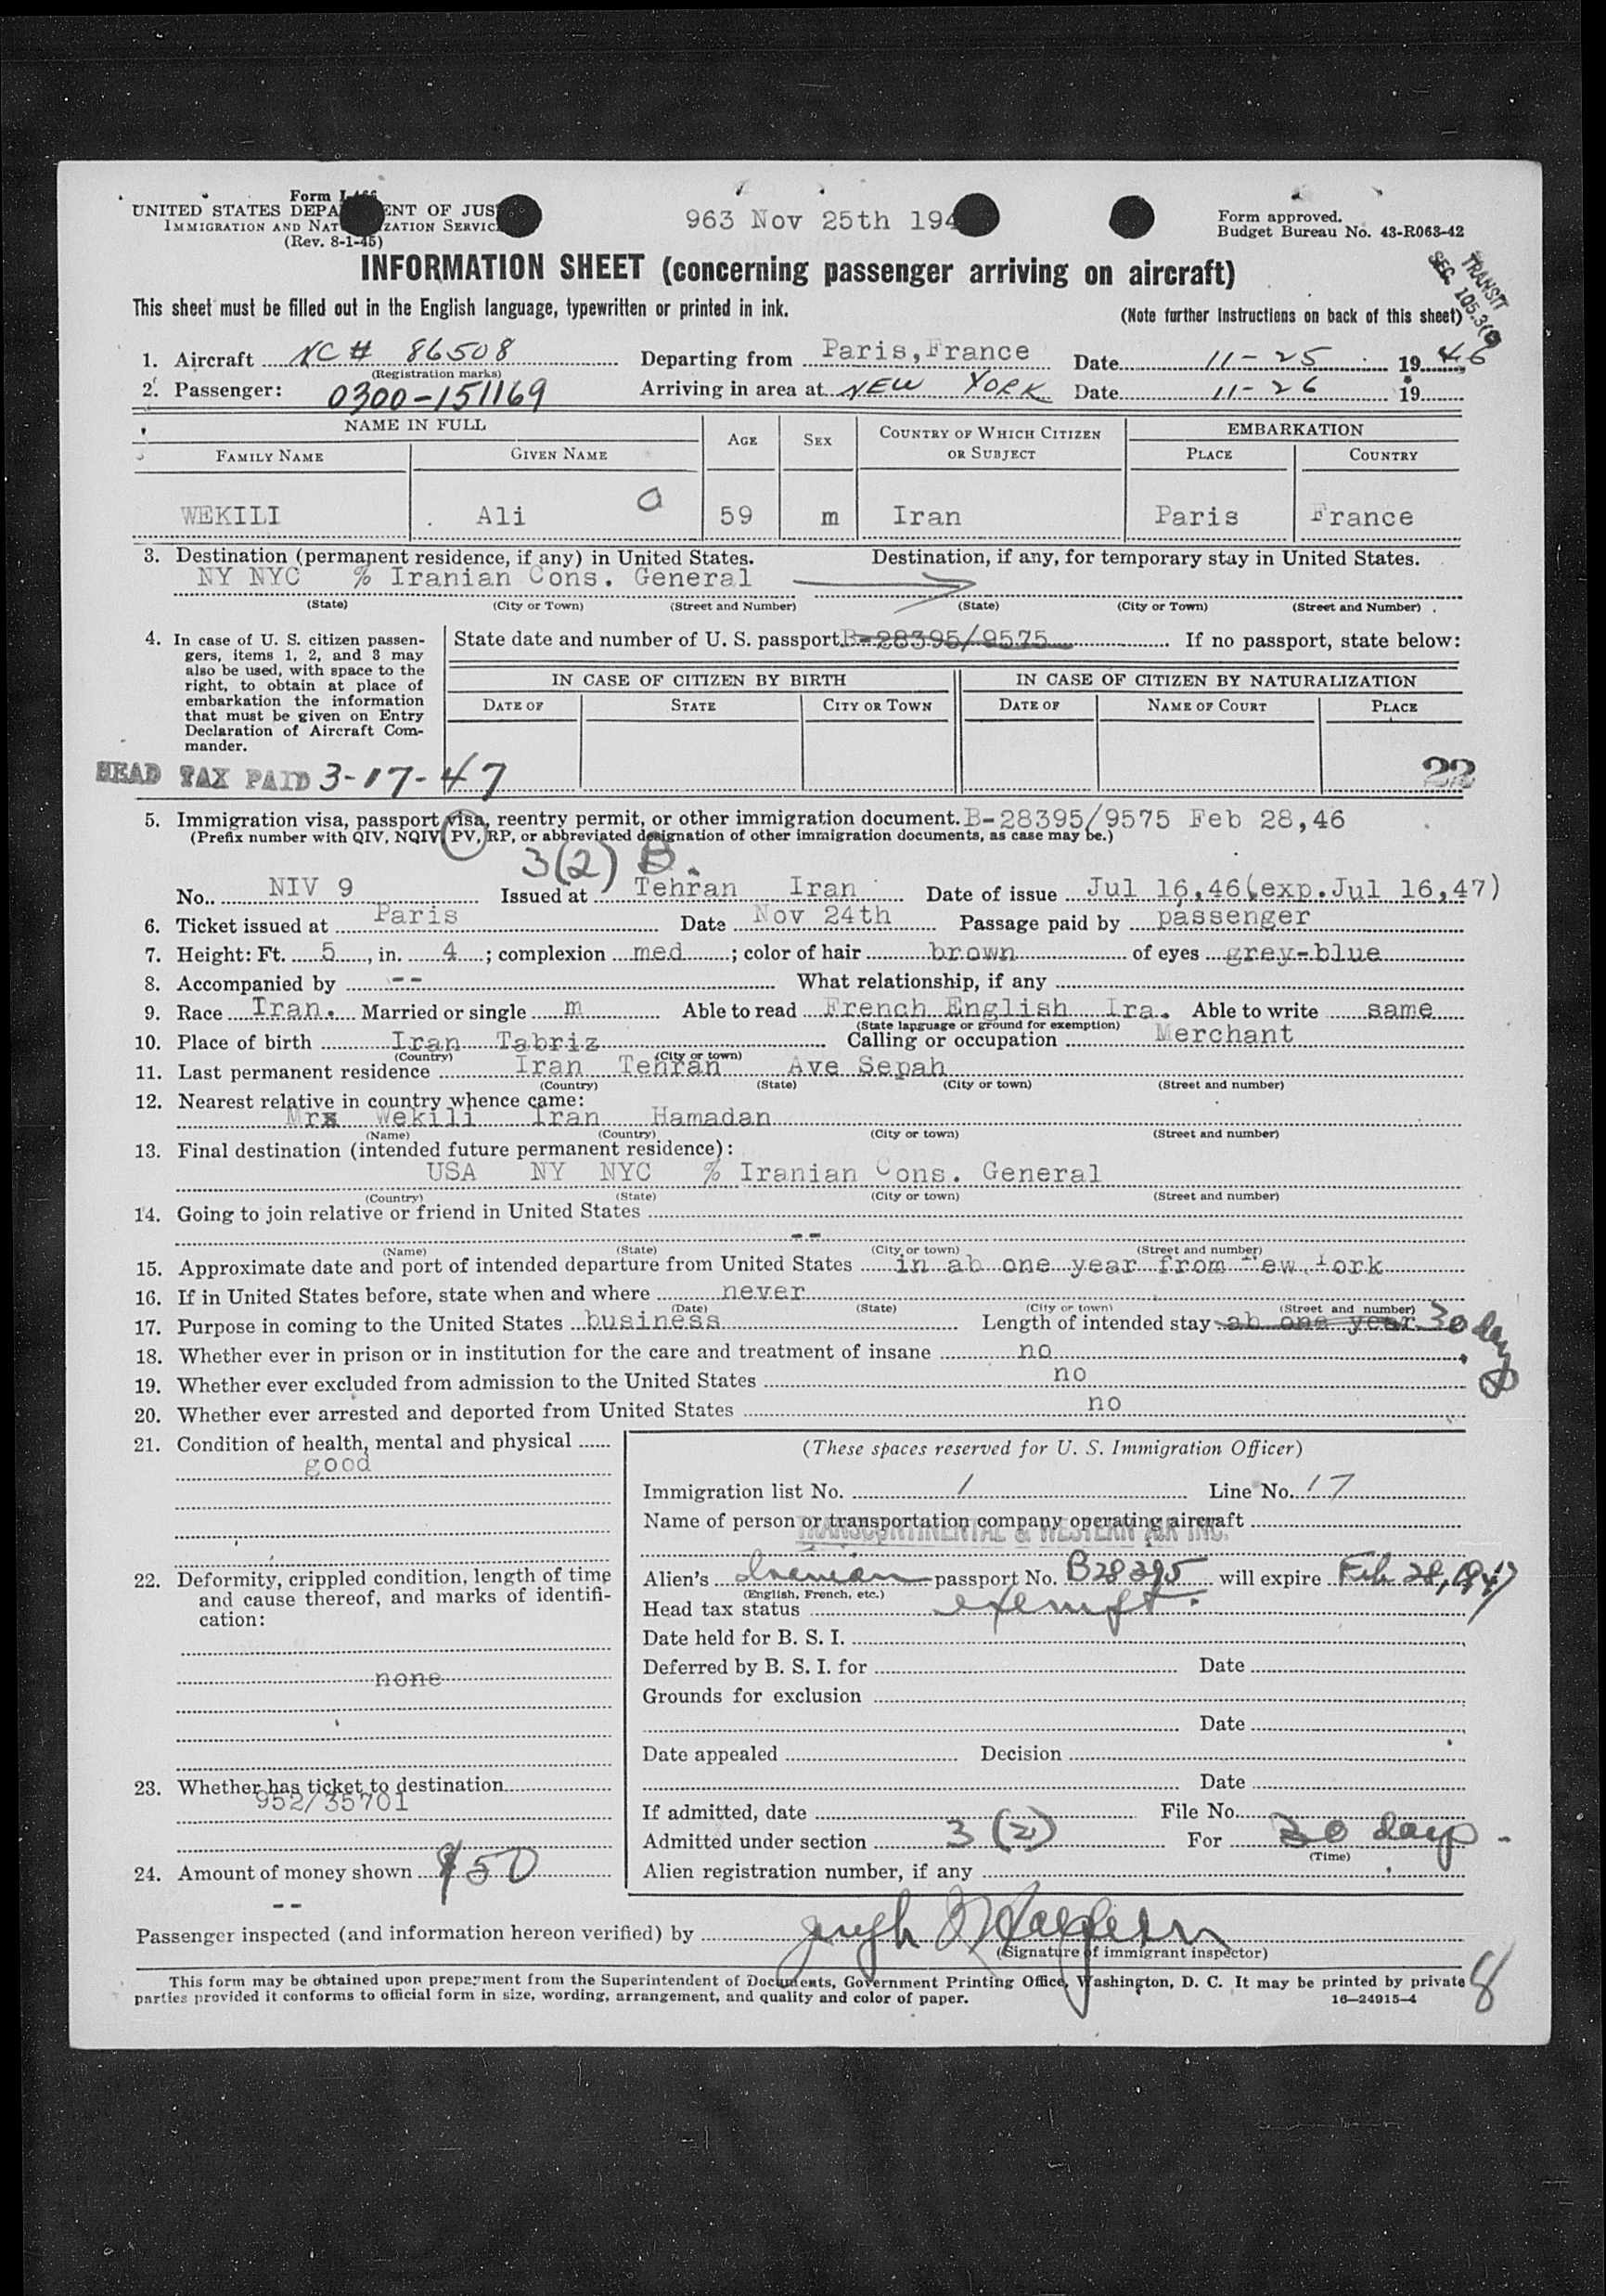 Form I-466
UNITED STATES DEPA ENT OF JUS
IMMIGRATION AND NAT IZATION SERVIC
(Rev. 8-1-45)
963 Nov 25th 194
Form approved.
Budget Bureau No. 43-R063-42
TRANSIT
SEC. 105.3(
INFORMATION SHEET (concerning passenger arriving on aircraft)
This sheet must be filled out in the English language, typewritten or printed in ink.
(Note further instructions on back of this sheet)
1. Aircraft NC# 86508 Departing from Paris, France Date 11-25 1946
(Registration marks)
2. Passenger: 0300-151169 Arriving in area at NEW YORK Date 11-26 19
NAME IN FULL AGE SEX COUNTRY OF WHICH CITIZEN OR SUBJECT EMBARKATION
FAMILY NAME GIVEN NAME PLACE COUNTRY
WEKILI Ali a 59 m Iran Paris France
3. Destination (permanent residence, if any) in United States. Destination, if any, for temporary stay in United States.
NY NYC % Iranian Cons. General
(State) (City or Town) (Street and Number) (State) (City or Town) (Street and Number)
4. In case of U. S. citizen passen-
gers, items 1, 2, and 3 may
also be used, with space to the
right, to obtain at place of
embarkation the information
that must be given on Entry
Declaration of Aircraft Com-
mander.
State date and number of U. S. passport B-28395/9575 If no passport, state below:
IN CASE OF CITIZEN BY BIRTH IN CASE OF CITIZEN BY NATURALIZATION
DATE OF STATE CITY OR TOWN DATE OF NAME OF COURT PLACE
HEAD TAX PAID 3-17-47 22
5. Immigration visa, passport visa, reentry permit, or other immigration document. B-28395/9575 Feb 28,46
(Prefix number with QIV, NQIV, PV, RP, or abbreviated designation of other immigration documents, as case may be.)
3(2) B.
No. NIV 9 Issued at Tehran Iran Date of issue Jul 16,46(exp.Jul 16,47)
6. Ticket issued at Paris Date Nov 24th Passage paid by passenger
7. Height: Ft. 5, in. 4; complexion med; color of hair brown of eyes grey-blue
8. Accompanied by -- What relationship, if any
9. Race Iran. Married or single m Able to read French English Ira. Able to write same
(State language or ground for exemption)
10. Place of birth Iran Tabriz Calling or occupation Merchant
(Country) (City or town)
11. Last permanent residence Iran Tehran Ave Sepah
(Country) (State) (City or town) (Street and number)
12. Nearest relative in country whence came:
Mrs Wekili Iran Hamadan
(Name) (Country) (City or town) (Street and number)
13. Final destination (intended future permanent residence):
USA NY NYC % Iranian Cons. General
(Country) (State) (City or town) (Street and number)
14. Going to join relative or friend in United States
--
(Name) (State) (City or town) (Street and number)
15. Approximate date and port of intended departure from United States in ab one year from New York
16. If in United States before, state when and where never
(Date) (State) (City or town) (Street and number)
17. Purpose in coming to the United States business Length of intended stay ab one year 30 days
18. Whether ever in prison or in institution for the care and treatment of insane no
19. Whether ever excluded from admission to the United States no
20. Whether ever arrested and deported from United States no
21. Condition of health, mental and physical
good
22. Deformity, crippled condition, length of time
and cause thereof, and marks of identifi-
cation:
none
23. Whether has ticket to destination
952/35701
24. Amount of money shown $50
--
(These spaces reserved for U. S. Immigration Officer)
Immigration list No. 1 Line No. 17
Name of person or transportation company operating aircraft
TRANSCONTINENTAL & WESTERN AIR INC.
Alien's Iranian passport No. B28395 will expire Feb 28, 1947
(English, French, etc.)
Head tax status exempt.
Date held for B. S. I.
Deferred by B. S. I. for Date
Grounds for exclusion
Date
Date appealed Decision
Date
If admitted, date File No.
Admitted under section 3 (2) For 30 days
(Time)
Alien registration number, if any
Passenger inspected (and information hereon verified) by
(Signature of immigrant inspector)
This form may be obtained upon prepayment from the Superintendent of Documents, Government Printing Office, Washington, D. C. It may be printed by private
parties provided it conforms to official form in size, wording, arrangement, and quality and color of paper. 16—24915-4
8